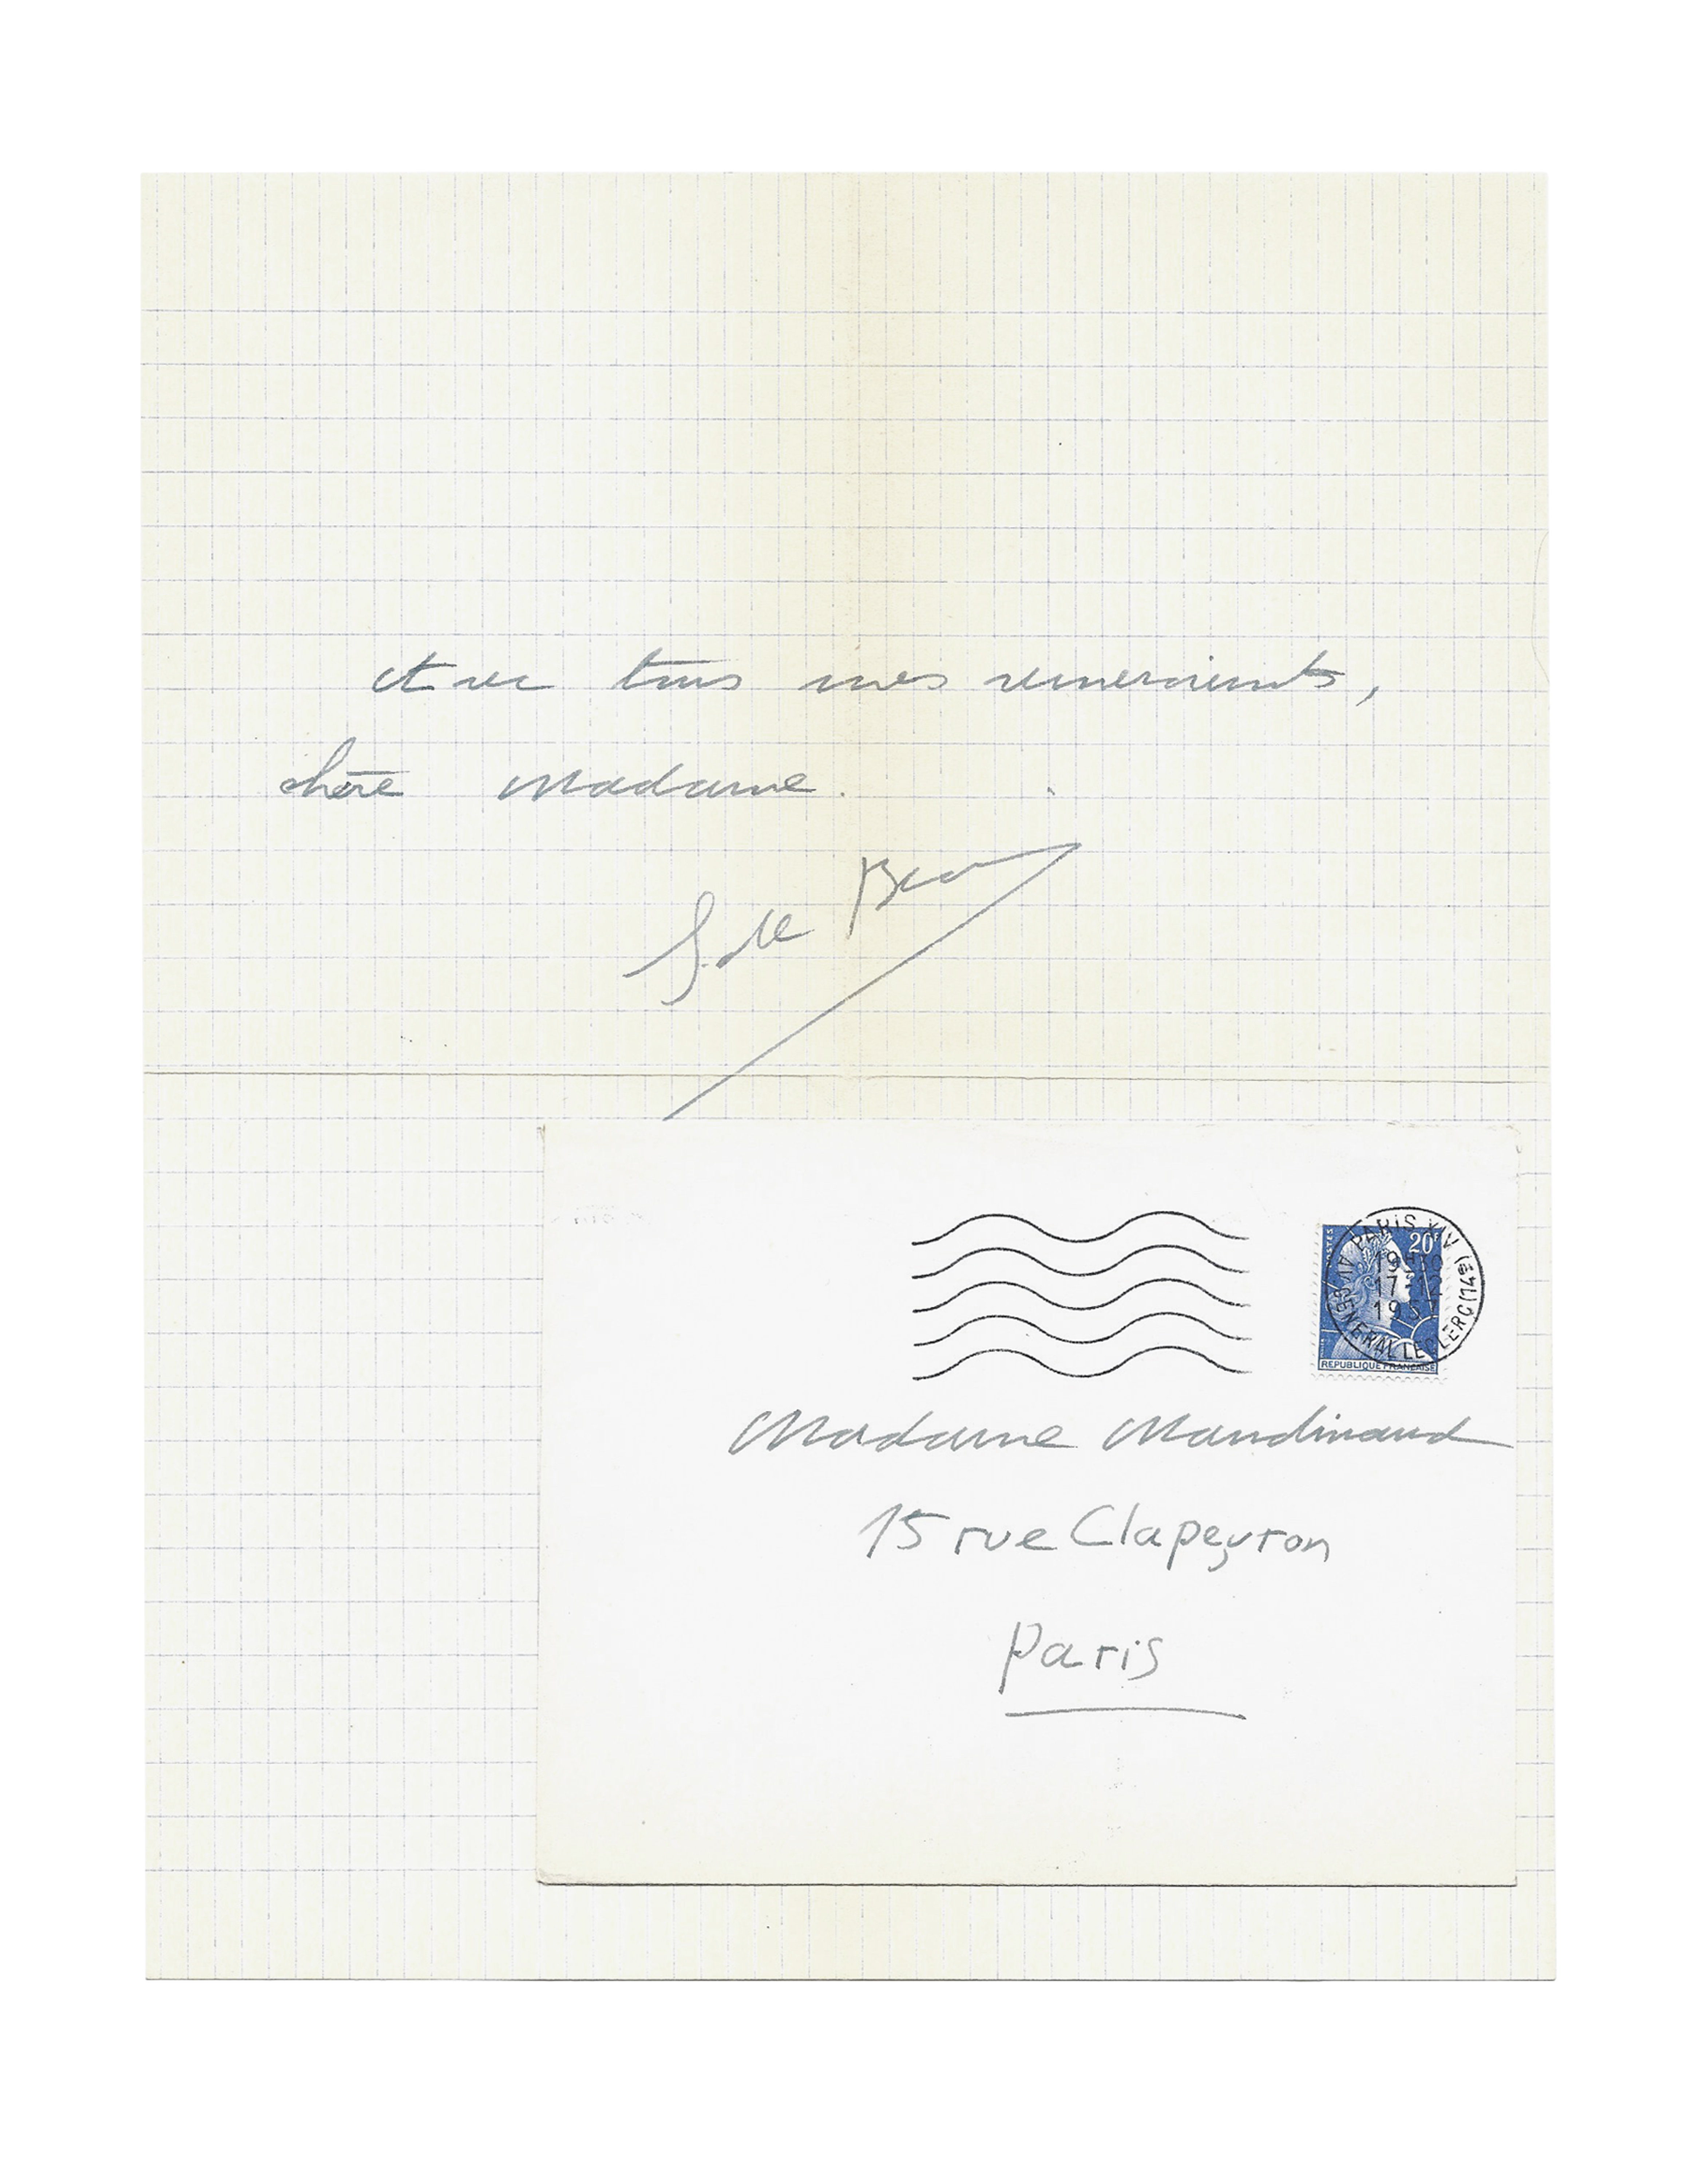 et avec tous mes remerciements,
chère Madame.
S. de Beauvoir
POSTES 20F
REPUBLIQUE FRANÇAISE
PARIS XIV
19H
17-12
1957
AV. GENERAL LECLERC (14e)
Madame Mandinaud
15 rue Clapeyron
Paris